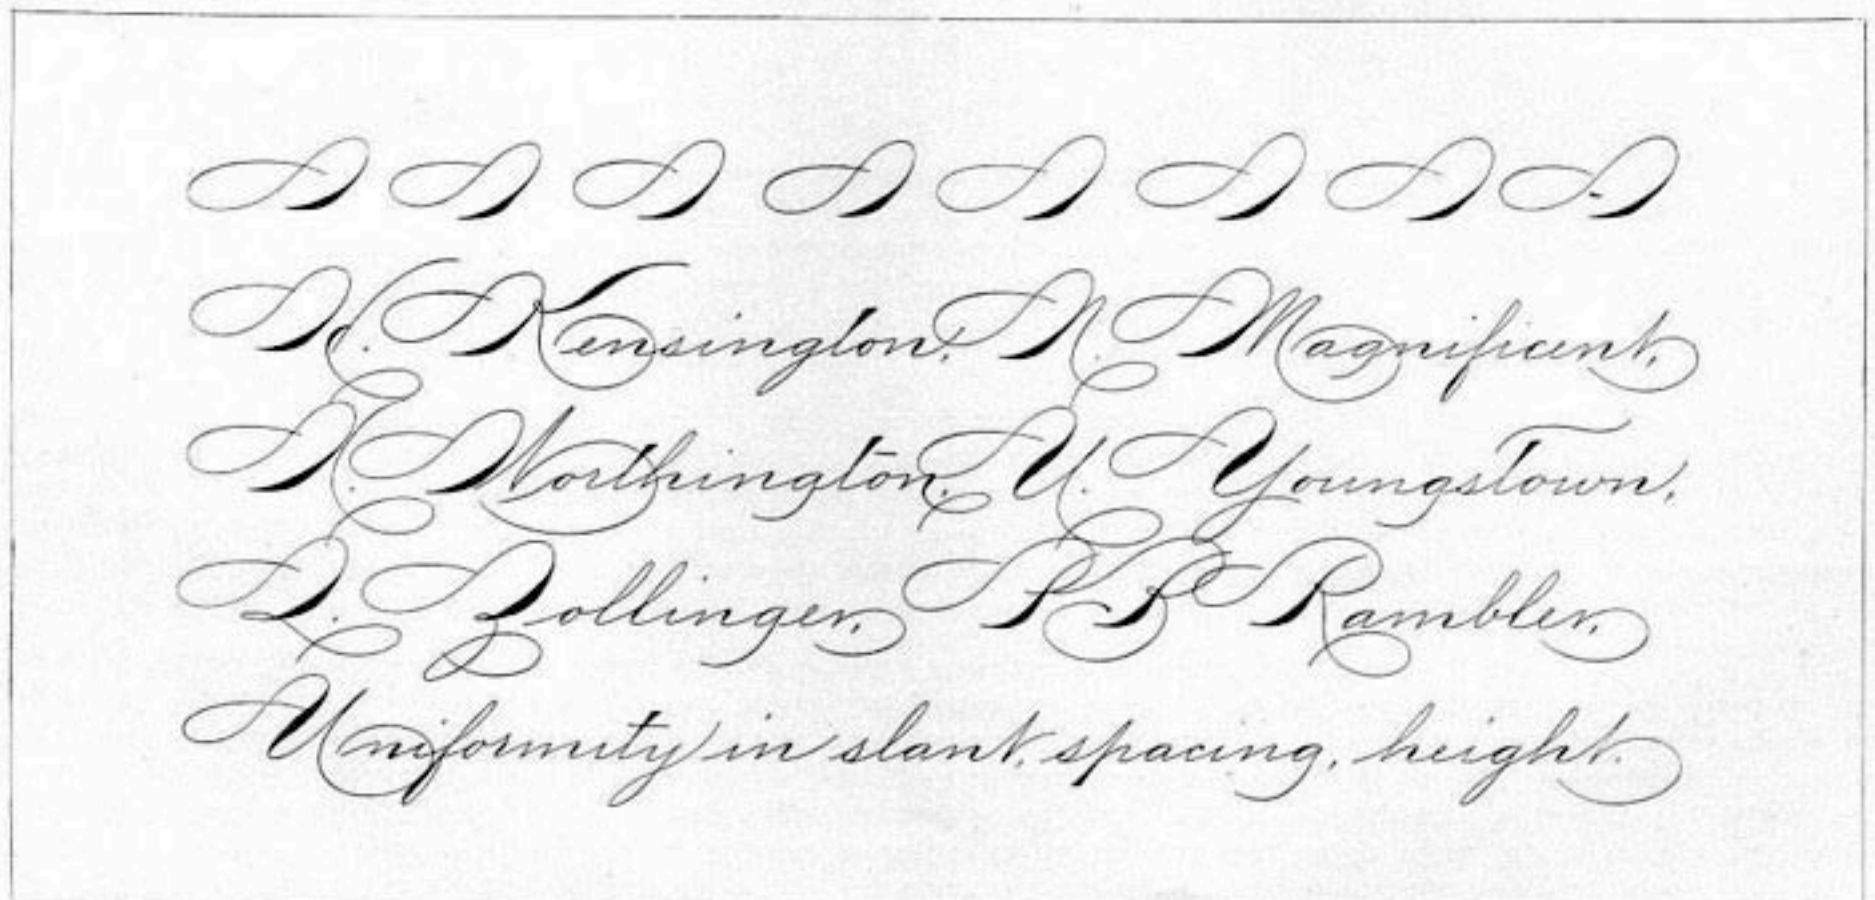 H. Kensington, N. Magnificent,
X. Worthington, U. Youngstown,
Q. Zollinger, P P Rambler,
Uniformity in slant, spacing, height.